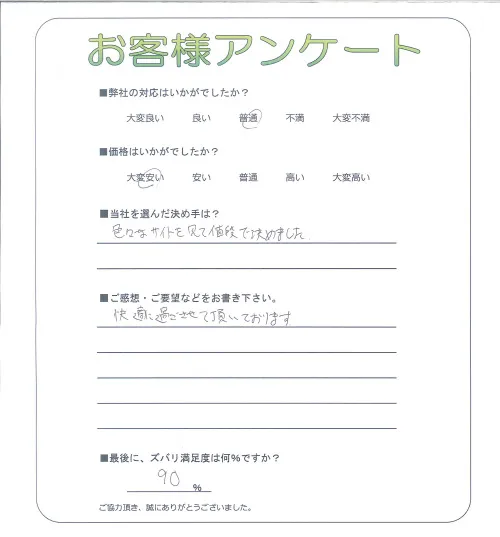 お客様アンケート
■弊社の対応はいかがでしたか？
大変良い 良い 普通 不満 大変不満
■価格はいかがでしたか？
大変安い 安い 普通 高い 大変高い
■当社を選んだ決め手は？
色々なサイトを見て値段で決めました
■ご感想・ご要望などをお書き下さい。
快適に過ごさせて頂いております
■最後に、ズバリ満足度は何％ですか？
90 ％
ご協力頂き、誠にありがとうございました。